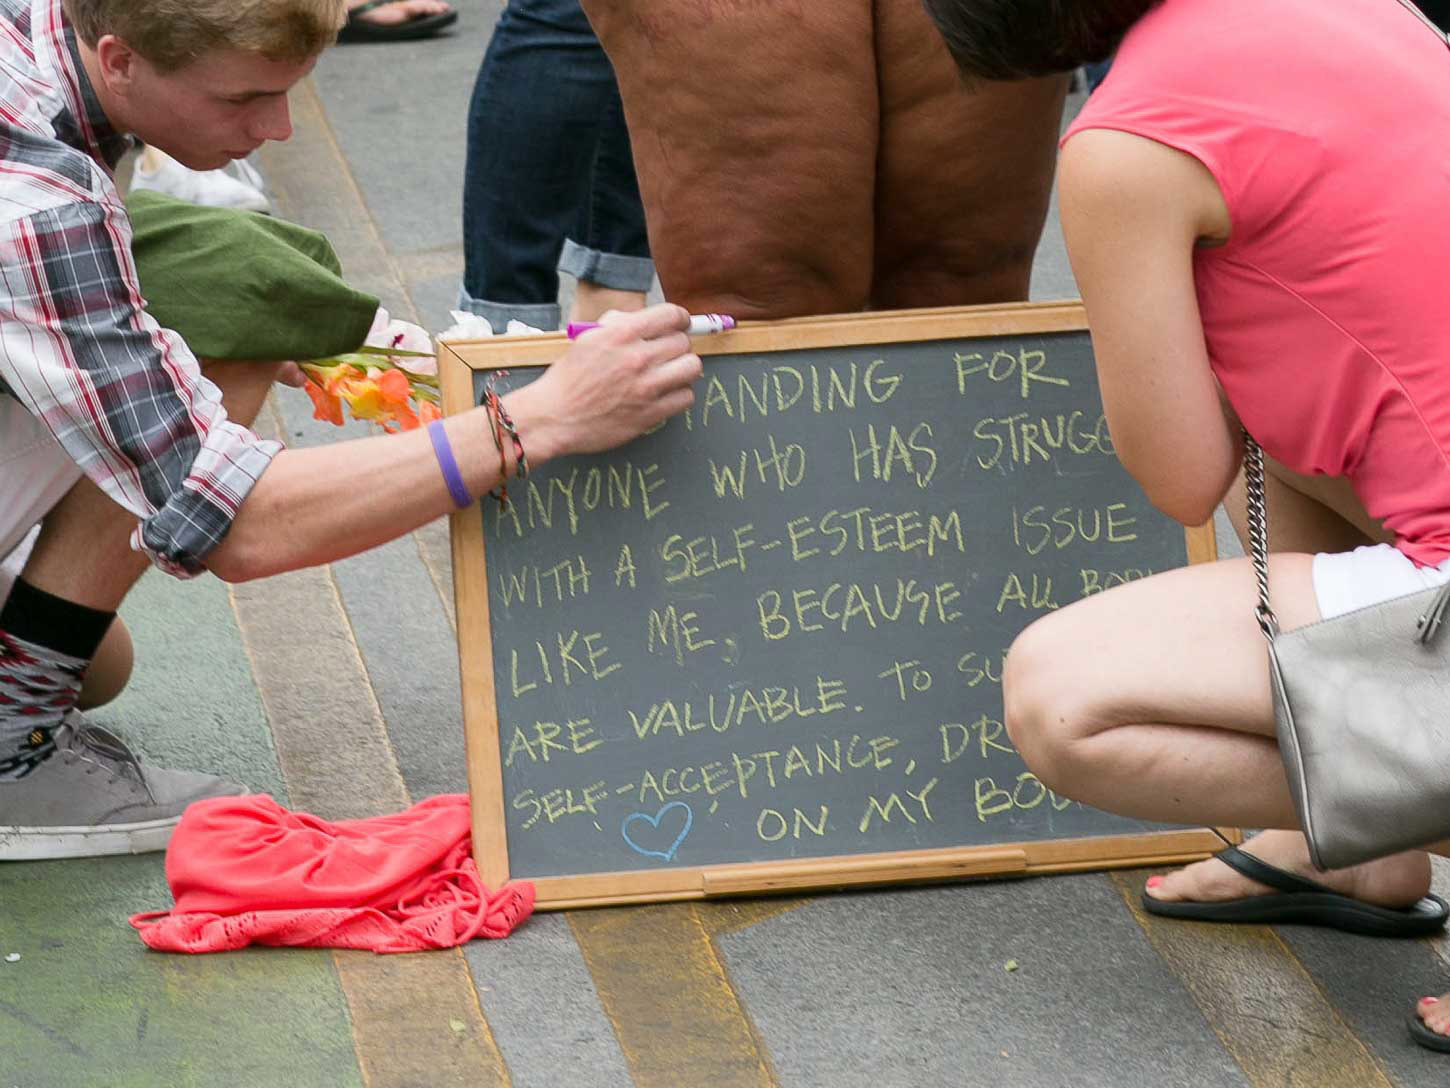 TANDING FOR
ANYONE WHO HAS STRUGG
WITH A SELF-ESTEEM ISSUE
LIKE ME, BECAUSE ALL BOD
ARE VALUABLE. TO SU
SELF-ACCEPTANCE, DR
ON MY BOD